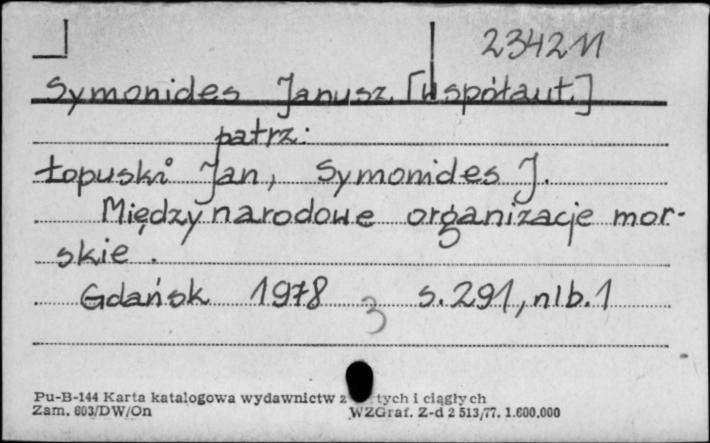 234211
Symonides Janusz [współaut.]
patrz:
Łopuski Jan, Symonides J.
Międzynarodowe organizacje mor-
skie.
Gdańsk 1978 s. 291, nlb. 1
3
Pu-B-144 Karta katalogowa wydawnictw z tych i ciągłych
Zam. 603/DW/On WZGraf. Z-d 2 513/77. 1.600.000